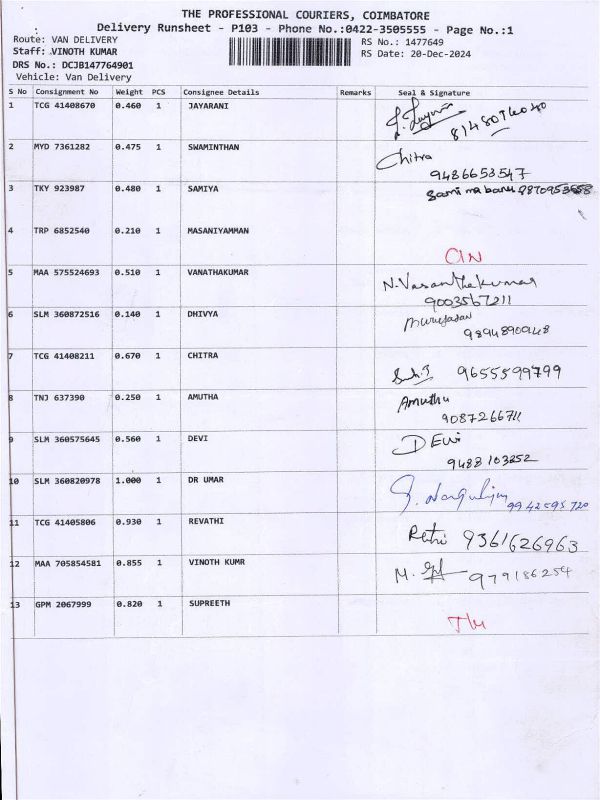 THE PROFESSIONAL COURIERS, COIMBATORE
Delivery Runsheet - P103 - Phone No.:0422-3505555 - Page No.:1
Route: VAN DELIVERY RS No.: 1477649
Staff: VINOTH KUMAR RS Date: 20-Dec-2024
DRS No.: DCJB147764901
Vehicle: Van Delivery
S No Consignment No Weight PCS Consignee Details Remarks Seal & Signature
1 TCG 41408670 0.460 1 JAYARANI
2 MYD 7361282 0.475 1 SWAMINTHAN Chitra
9486653547
3 TKY 923987 0.480 1 SAMIYA
4 TRP 6852540 0.210 1 MASANIYAMMAN
5 MAA 575524693 0.510 1 VANATHAKUMAR N.Vasanthakumar
9003567211
6 SLM 360872516 0.140 1 DHIVYA
7 TCG 41408211 0.670 1 CHITRA 9655599799
8 TNJ 637390 0.250 1 AMUTHA Amuthu
9087266711
9 SLM 360575645 0.560 1 DEVI DEvi
9488103252
10 SLM 360820978 1.000 1 DR UMAR
11 TCG 41405806 0.930 1 REVATHI 9361626963
12 MAA 705854581 0.855 1 VINOTH KUMR M. 979186254
13 GPM 2067999 0.820 1 SUPREETH